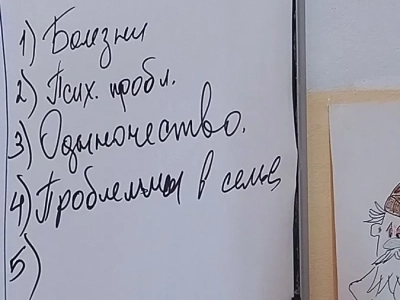 1) Болезни
2) Псих. пробл.
3) Одыночество.
4) Проблемы в семье
5)